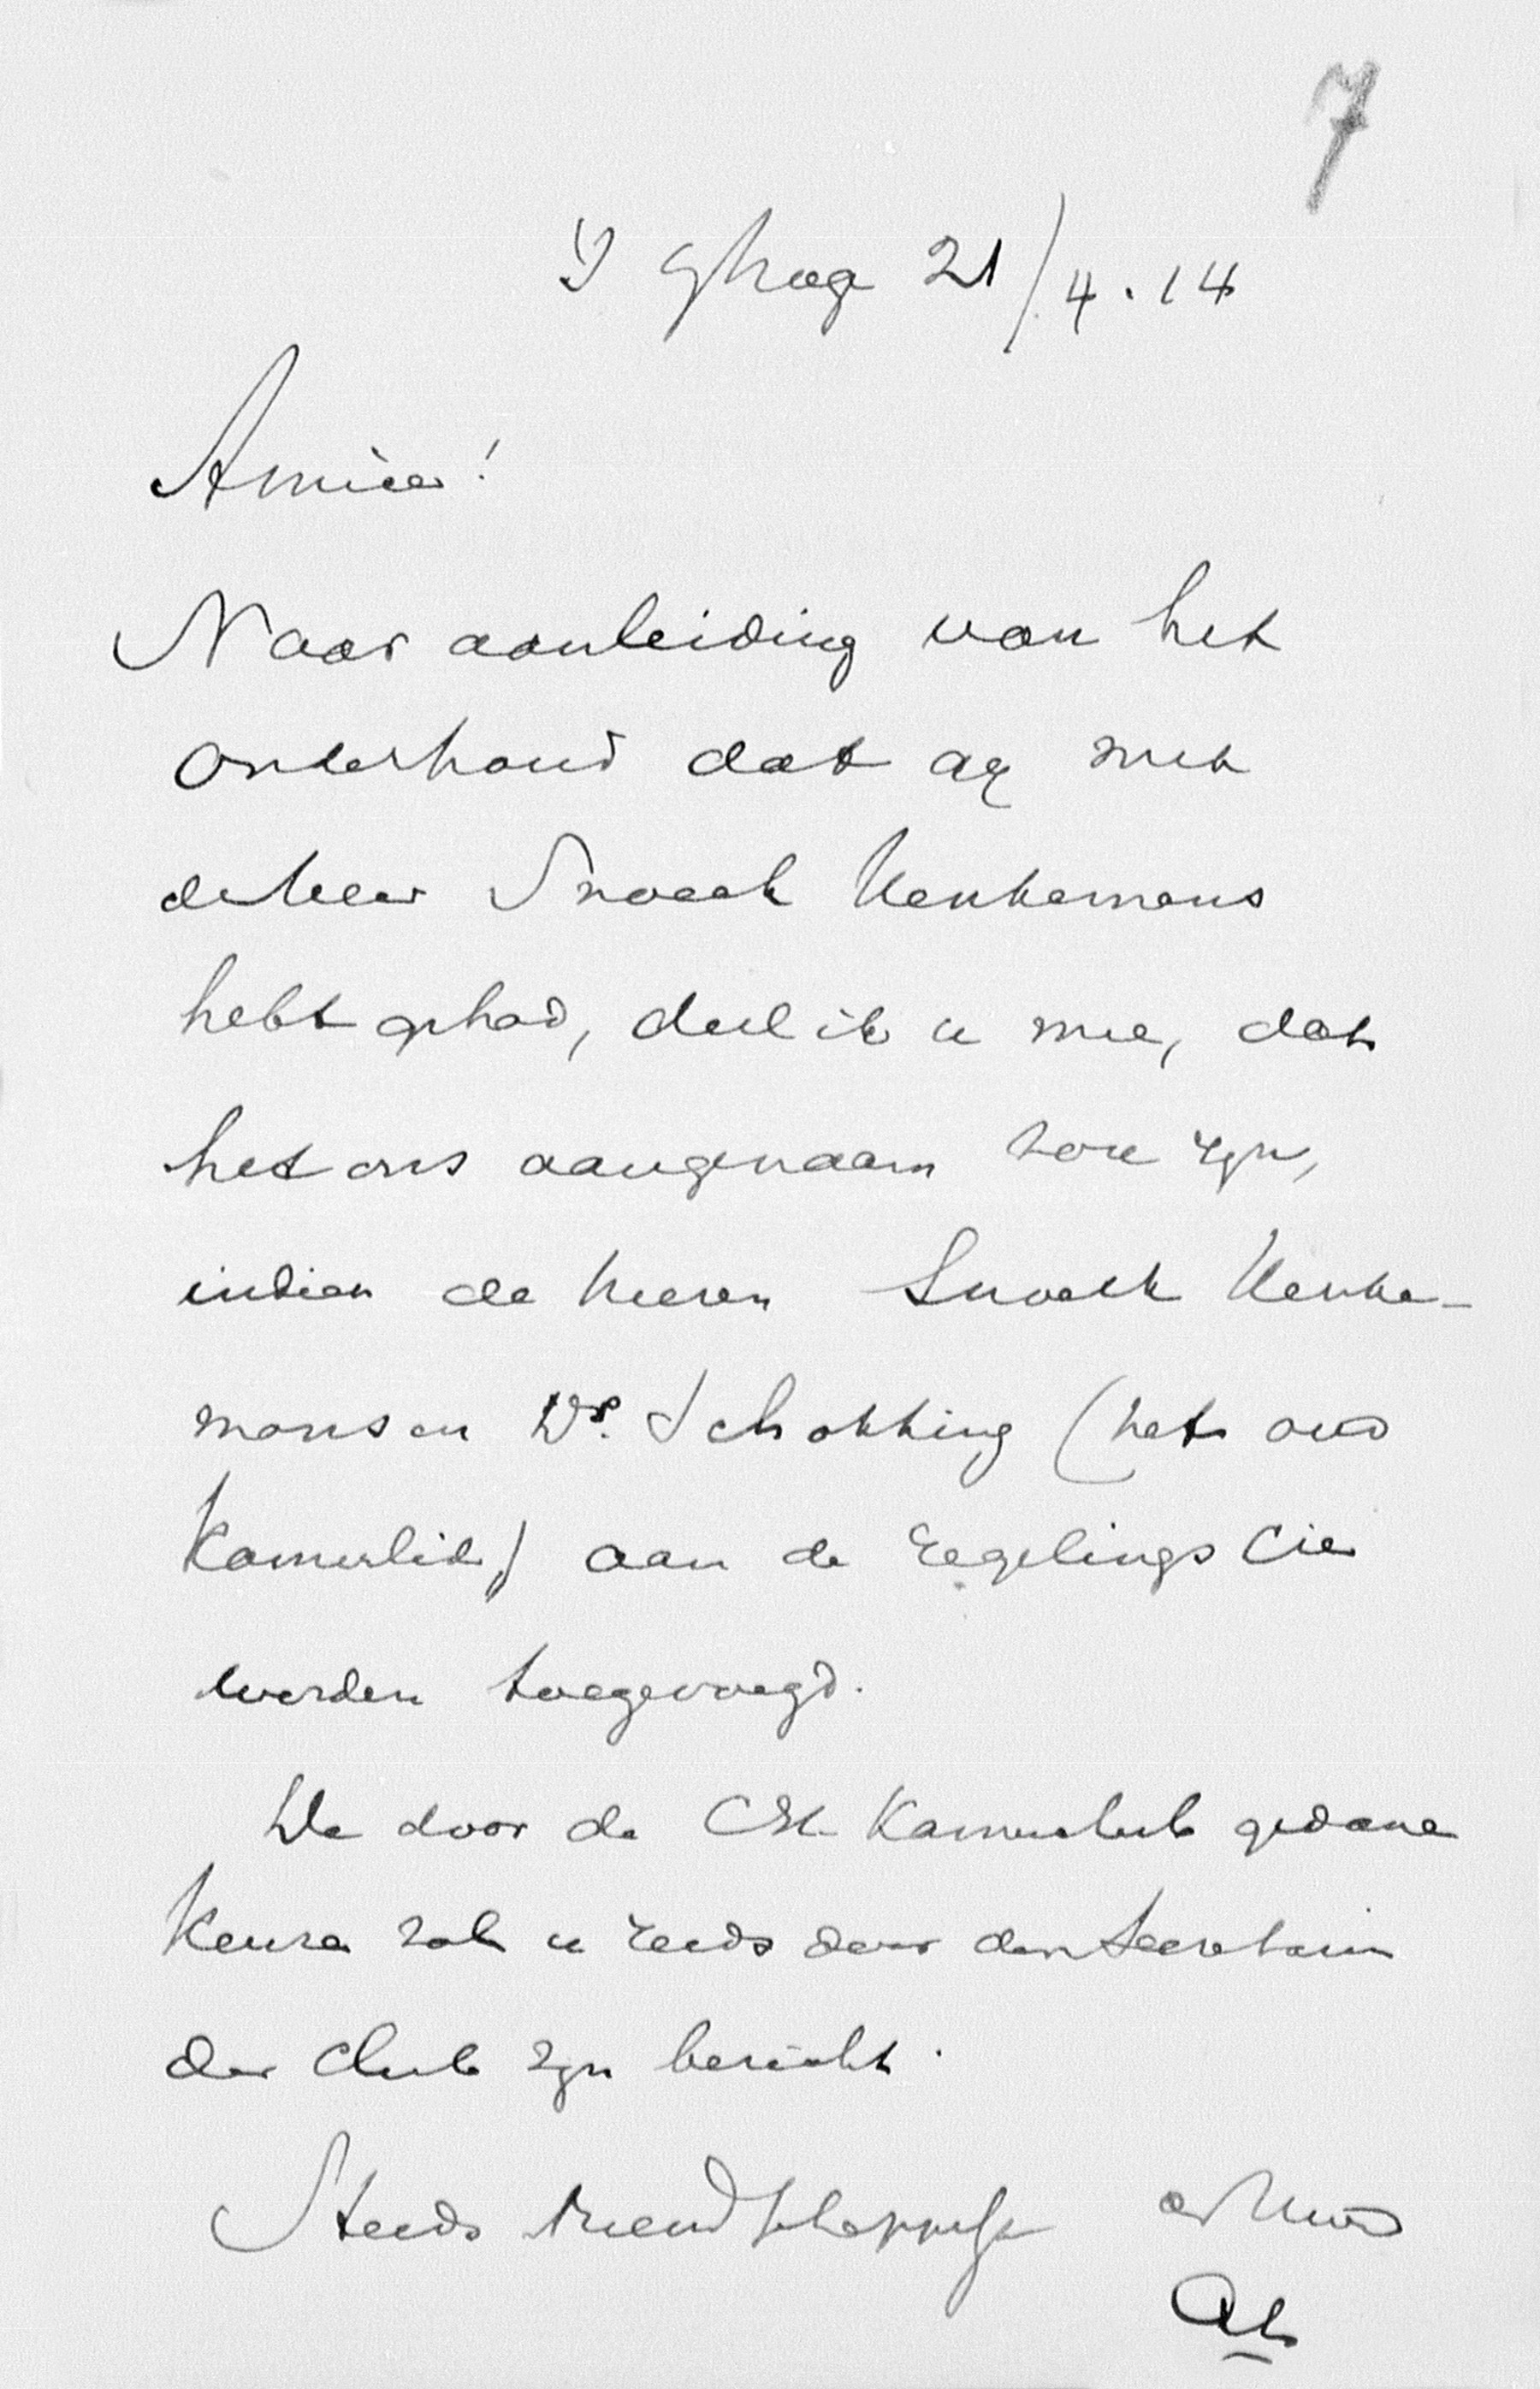 7
'S Ghage 21/4.14
Amice!
Naar aanleiding van het
onderhoud dat gij met
de heer Snoeck Henkemans
hebt gehad, deel ik u mee, dat
het ons aangenaam zou zijn,
indien de heeren Snoeck Henke-
mans en Dr. Schokking (het oud
Kamerlid) aan de regelings Cie
werden toegevoegd.
De door de CH Kamerclub gedane
keuze zal u reeds door den secretaris
der club zijn bericht.
Steeds vriendschappelijk